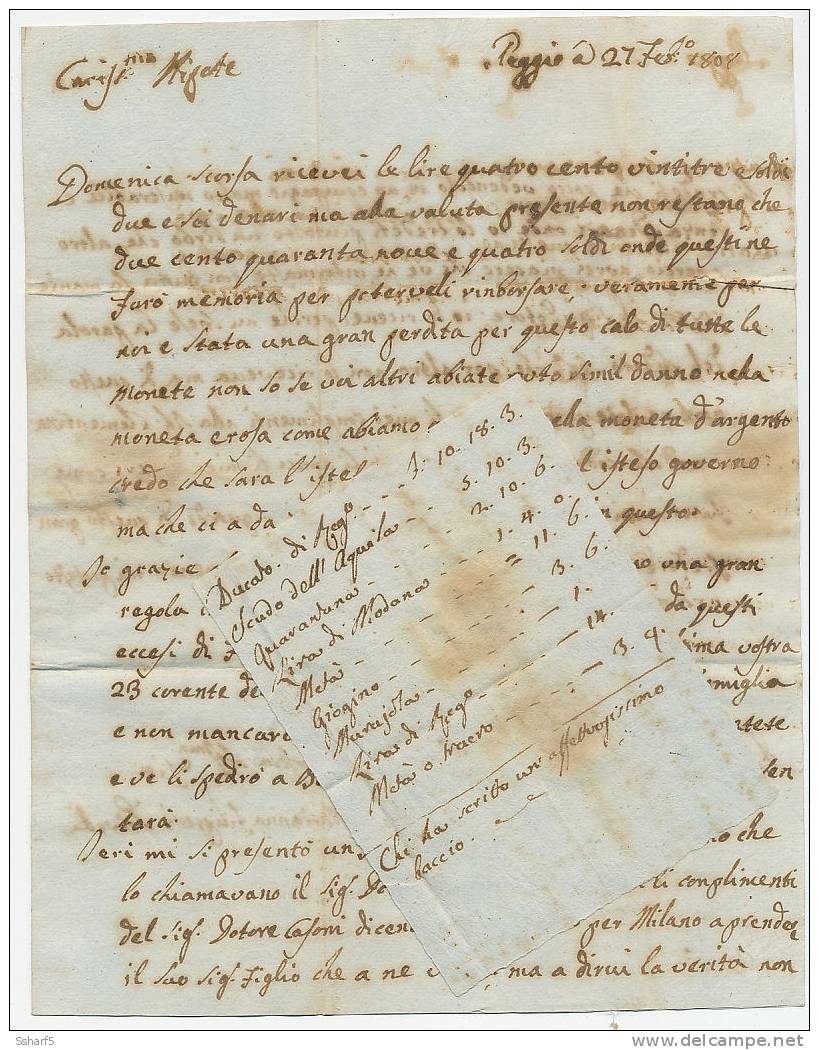 Caris.ma Nipote
Reggio a 27 Feb.o 1808
Domenica scorsa ricevei le lire quatro cento vintitre e soldi
due e sei denari ma alla valuta presente non restano che
due cento quaranta nove e quatro soldi onde questi ne
farò memoria per poterveli rinborsare, veramente per
noi e stata una gran perdita per questo calo di tutte le
monete non so se voi altri abiate auto simil danno nella
moneta erosa come abiamo ella moneta d'argento
credo che sara l'istes l isteso governo
ma che ci a da n questo
Je grazie o una gran
regola da questi
eccesi di ima vostra
23 corente de miglia
e non mancaro tete
e ve li spedirò a B sen
tarà.
Jeri mi si presentò un o che
lo chiamavano il sig. Do li conplimenti
del sig. Dotore Casoni dicen per Milano a prendere
il suo sig. Figlio che a ne ma a dirvi la verità non
Ducato di Reg.o - - - 1. 10. 18. 3.
Scudo dell'Aquila - - 5. 10. 3.
Quarantana - - - - 2. 10. 6.
Lira di Modana - - - 1. 4. 0.
Metà - - - - - = 11. 6.
Giogino - - - - - 3. 6.
Murajola - - - - 1.
Lira di Reg.o - - - 14.
Metà o traero - - - - 3. 4.
Chi ha scritto un' affettuosissimo
baccio.
Ssharf5
www.delcampe.net